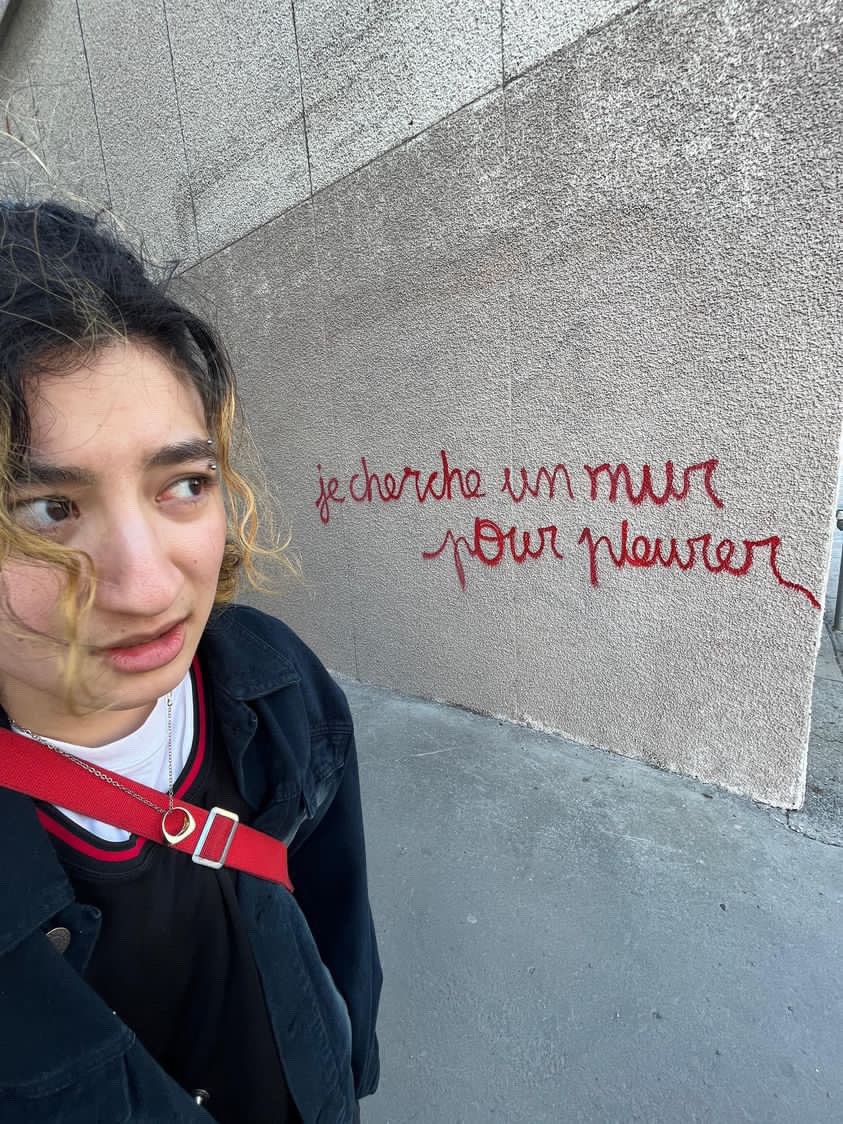 je cherche un mur
pour pleurer